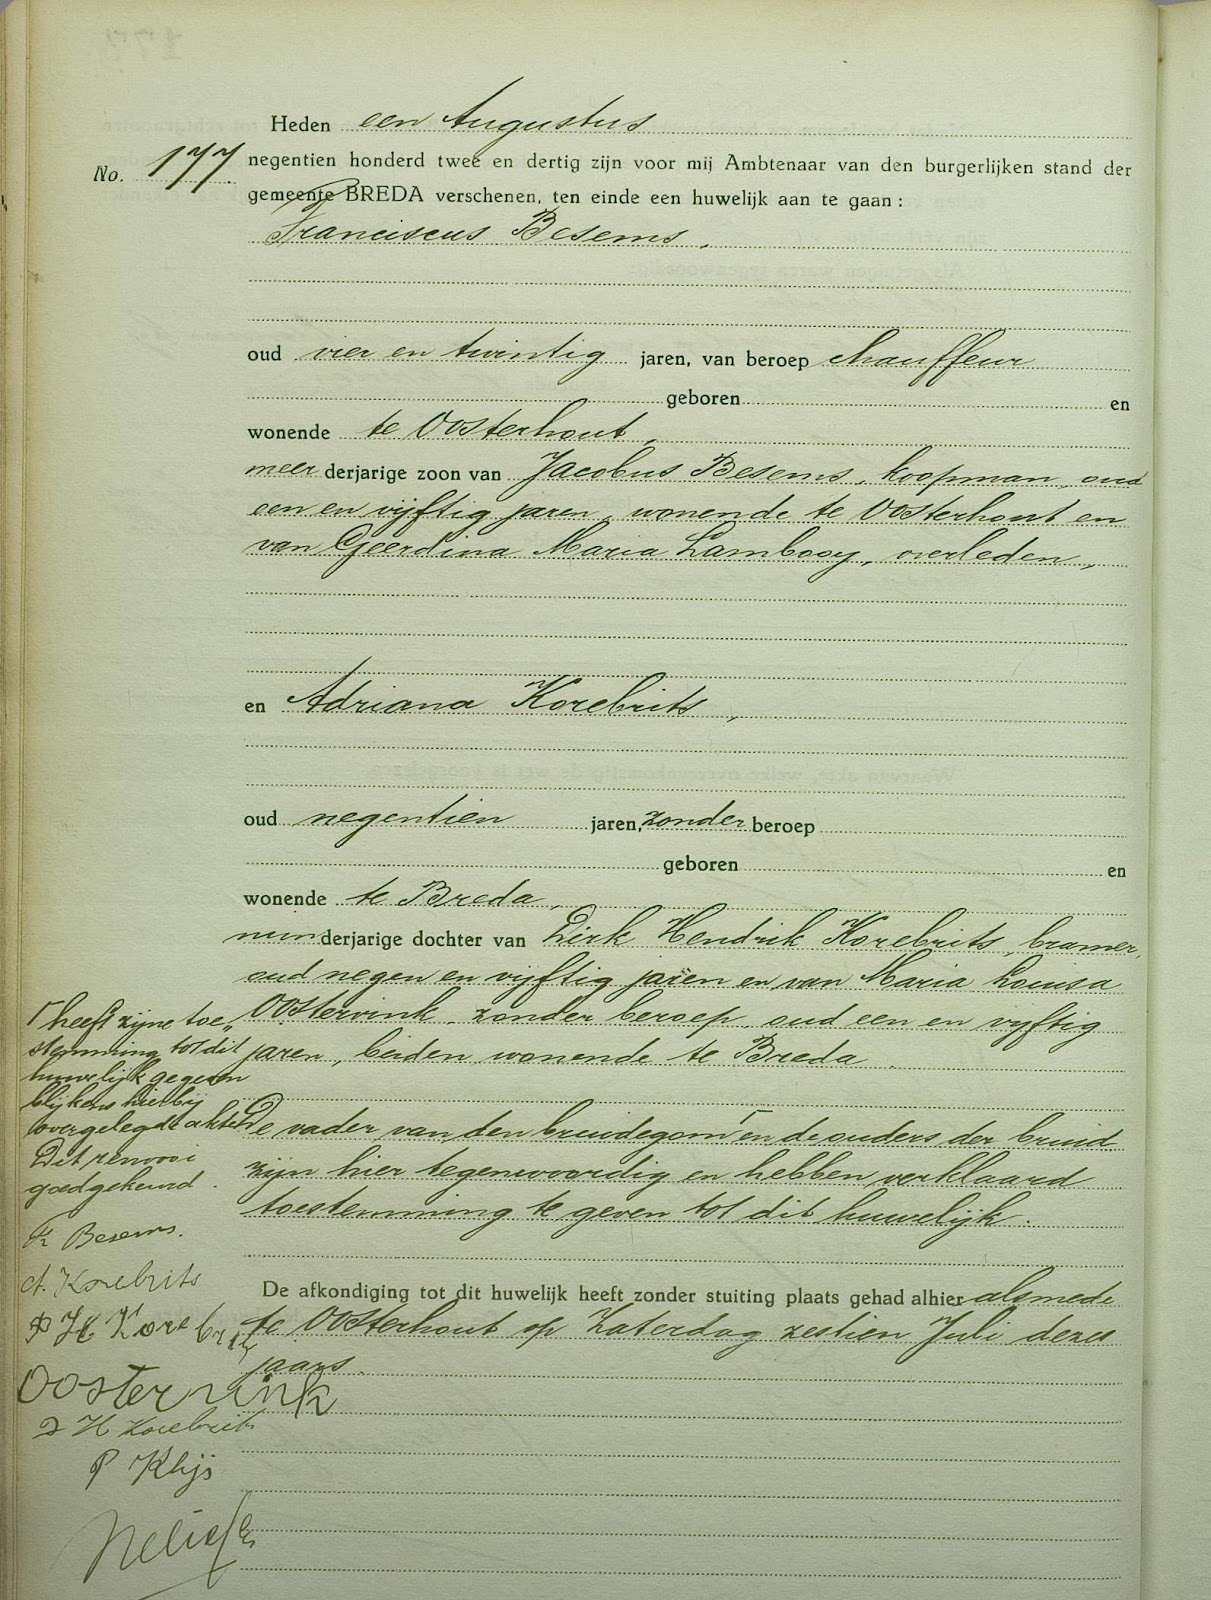 Heden een Augustus
No. 177
negentien honderd twee en dertig zijn voor mij Ambtenaar van den burgerlijken stand der
gemeente BREDA verschenen, ten einde een huwelijk aan te gaan:
Franciscus Besems,
oud vier en twintig jaren, van beroep chauffeur
geboren en
wonende te Oosterhout,
meerderjarige zoon van Jacobus Besems, koopman, oud
een en vijftig jaren, wonende te Oosterhout en
van Geerdina Maria Lambooy, overleden,
en Adriana Korebrits,
oud negentien jaren, zonder beroep
geboren en
wonende te Breda,
minderjarige dochter van Dirk Hendrik Korebrits, bramer,
oud negen en vijftig jaren en van Maria Louisa
Oostervink, zonder beroep, oud een en vijftig
jaren, beiden wonende te Breda.
De vader van den bruidegom Γ en de ouders der bruid
zijn hier tegenwoordig en hebben verklaard
toestemming te geven tot dit huwelijk.
De afkondiging tot dit huwelijk heeft zonder stuiting plaats gehad alhier alsmede
te Oosterhout op Zaterdag zestien Juli dezes
jaars.
Γ heeft zijne toe„
stemming tot dit
huwelijk gegeven
blijkens hierbij
overgelegde akte
Dit renvooi
goedgekeurd.
Fr Besems.
A. Korebrits
D H Korebrits
Oostervink
D H Korebrits
P Klijs